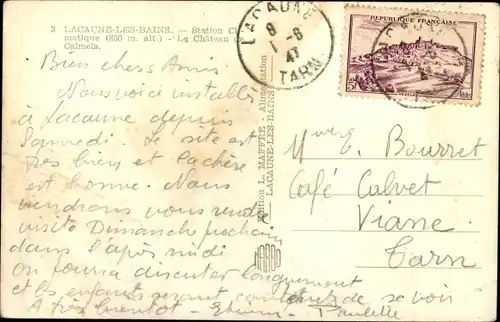 3 LACAUNE-LES-BAINS. – Station Cl
matique (850 m. alt.) - Le Château de
Calmels.
Bien chers Amis
Nous voici installés
à Lacaune depuis
Samedi. Le site est
très bien et la chère
est bonne. Nous
viendrons vous rendre
visite Dimanche prochain
dans l'après midi
on pourra discuter longuement
et les enfants seront contents de se voir
A très bientôt - Paulette
Edition L. MAFFRE - Alimentation
LACAUNE-LES-BAINS
LACAUNE
8
1-8
47
TARN
REPUBLIQUE FRANÇAISE
5F
Bourret
Café Calvet
Viane
Tarn